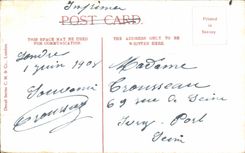 Imprimer
POST CARD.
Printed in
Saxony
THIS SPACE MAY BE USED
FOR COMMUNICATION
THE ADDRESS ONLY TO BE
WRITTEN HERE
Londre
1 juin 1908
Souvenir
Trousseau
Madame
Trousseau
69 rue de Seine
Ivry-Port
Seine